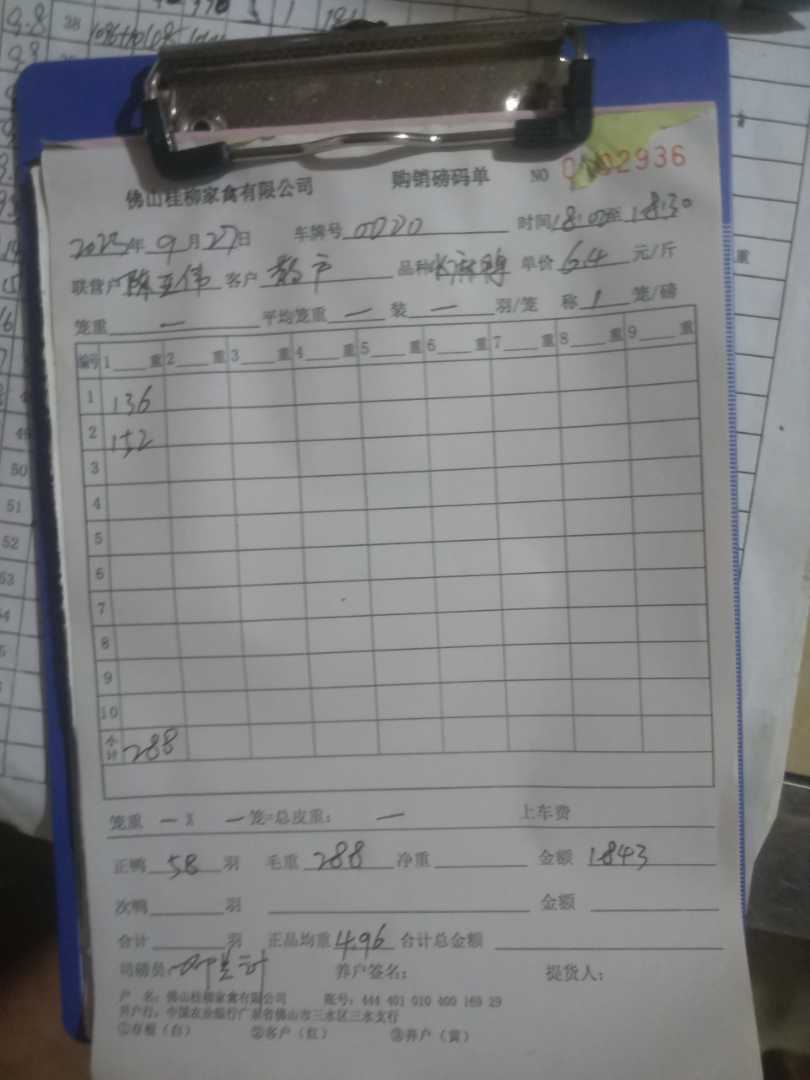 佛山桂柳家禽有限公司 购销磅码单 NO 0002936
2023年 9月27日 车牌号 0000 时间18:00至18:30
联营户 陈亚伟 客户 散户 品种 麻鸭 单价 6.4 元/斤
笼重 — 平均笼重 — 装 — 羽/笼 称 1 笼/磅
编号 1 重 2 重 3 重 4 重 5 重 6 重 7 重 8 重 9 重
1 136
2 152
3
4
5
6
7
8
9
10
小计 288
笼重 — X — 笼=总皮重: — 上车费
正鸭 58 羽 毛重 288 净重 金额 1843
次鸭 羽 金额
合计 羽 正品均重 4.96 合计总金额
司磅员: 养户签名: 提货人:
户 名: 佛山桂柳家禽有限公司 账号: 444 401 010 400 169 29
开户行: 中国农业银行广东省佛山市三水区三水支行
①存根(白) ②客户(红) ③养户(黄)